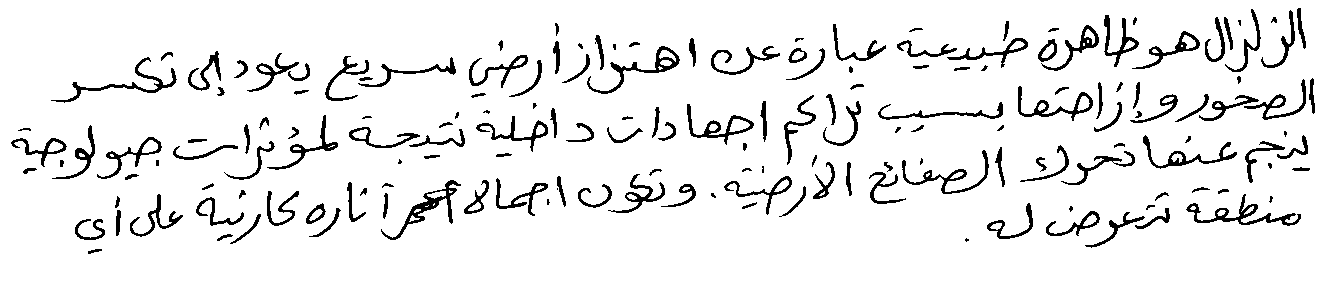 الزلزال هو ظاهرة طبيعية عبارة عن اهتزاز أرضي سريع يعود إلى تكسر
الصخور وإزاحتها بسبب تراكم اجهادات داخلية نتيجة لمؤثرات جيولوجية
ينجم عنها تحرك الصفائح الأرضية. وتكون اجمالا آثاره كارثية على أي
منطقة تتعرض له.